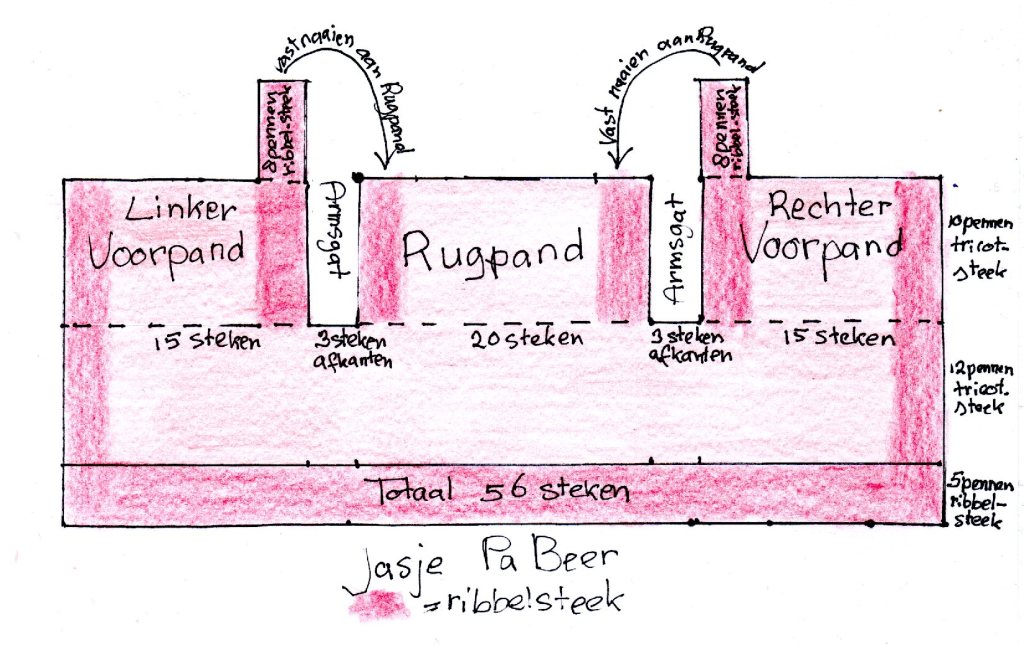 vastnaaien aan Rugpand
Vast naaien aan Rugpand
8 pennen
ribbel-steek
8 pennen
ribbel-steek
Linker
Voorpand
Armsgat
Rugpand
Armsgat
Rechter
Voorpand
10 pennen
tricot-
steek
15 steken
3 steken
afkanten
20 steken
3 steken
afkanten
15 steken
12 pennen
tricot-
steek
Totaal 56 steken
5 pennen
ribbel-
steek
Jasje Pa Beer
=ribbelsteek